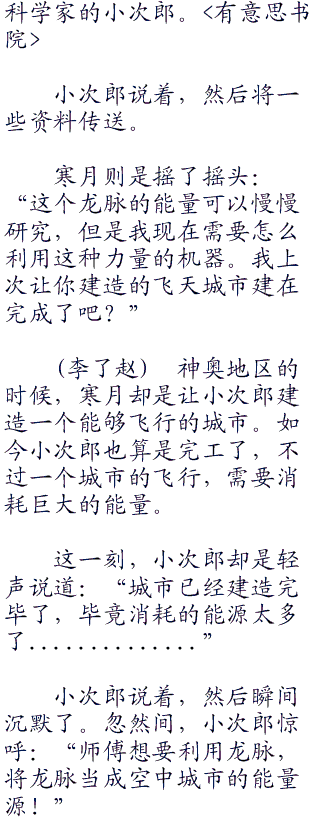 科学家的小次郎。<有意思书
院>
小次郎说着，然后将一
些资料传送。
寒月则是摇了摇头：
“这个龙脉的能量可以慢慢
研究，但是我现在需要怎么
利用这种力量的机器。我上
次让你建造的飞天城市建在
完成了吧？”
(李了赵) 神奥地区的
时候，寒月却是让小次郎建
造一个能够飞行的城市。如
今小次郎也算是完工了，不
过一个城市的飞行，需要消
耗巨大的能量。
这一刻，小次郎却是轻
声说道：“城市已经建造完
毕了，毕竟消耗的能源太多
了..............”
小次郎说着，然后瞬间
沉默了。忽然间，小次郎惊
呼：“师傅想要利用龙脉，
将龙脉当成空中城市的能量
源！”